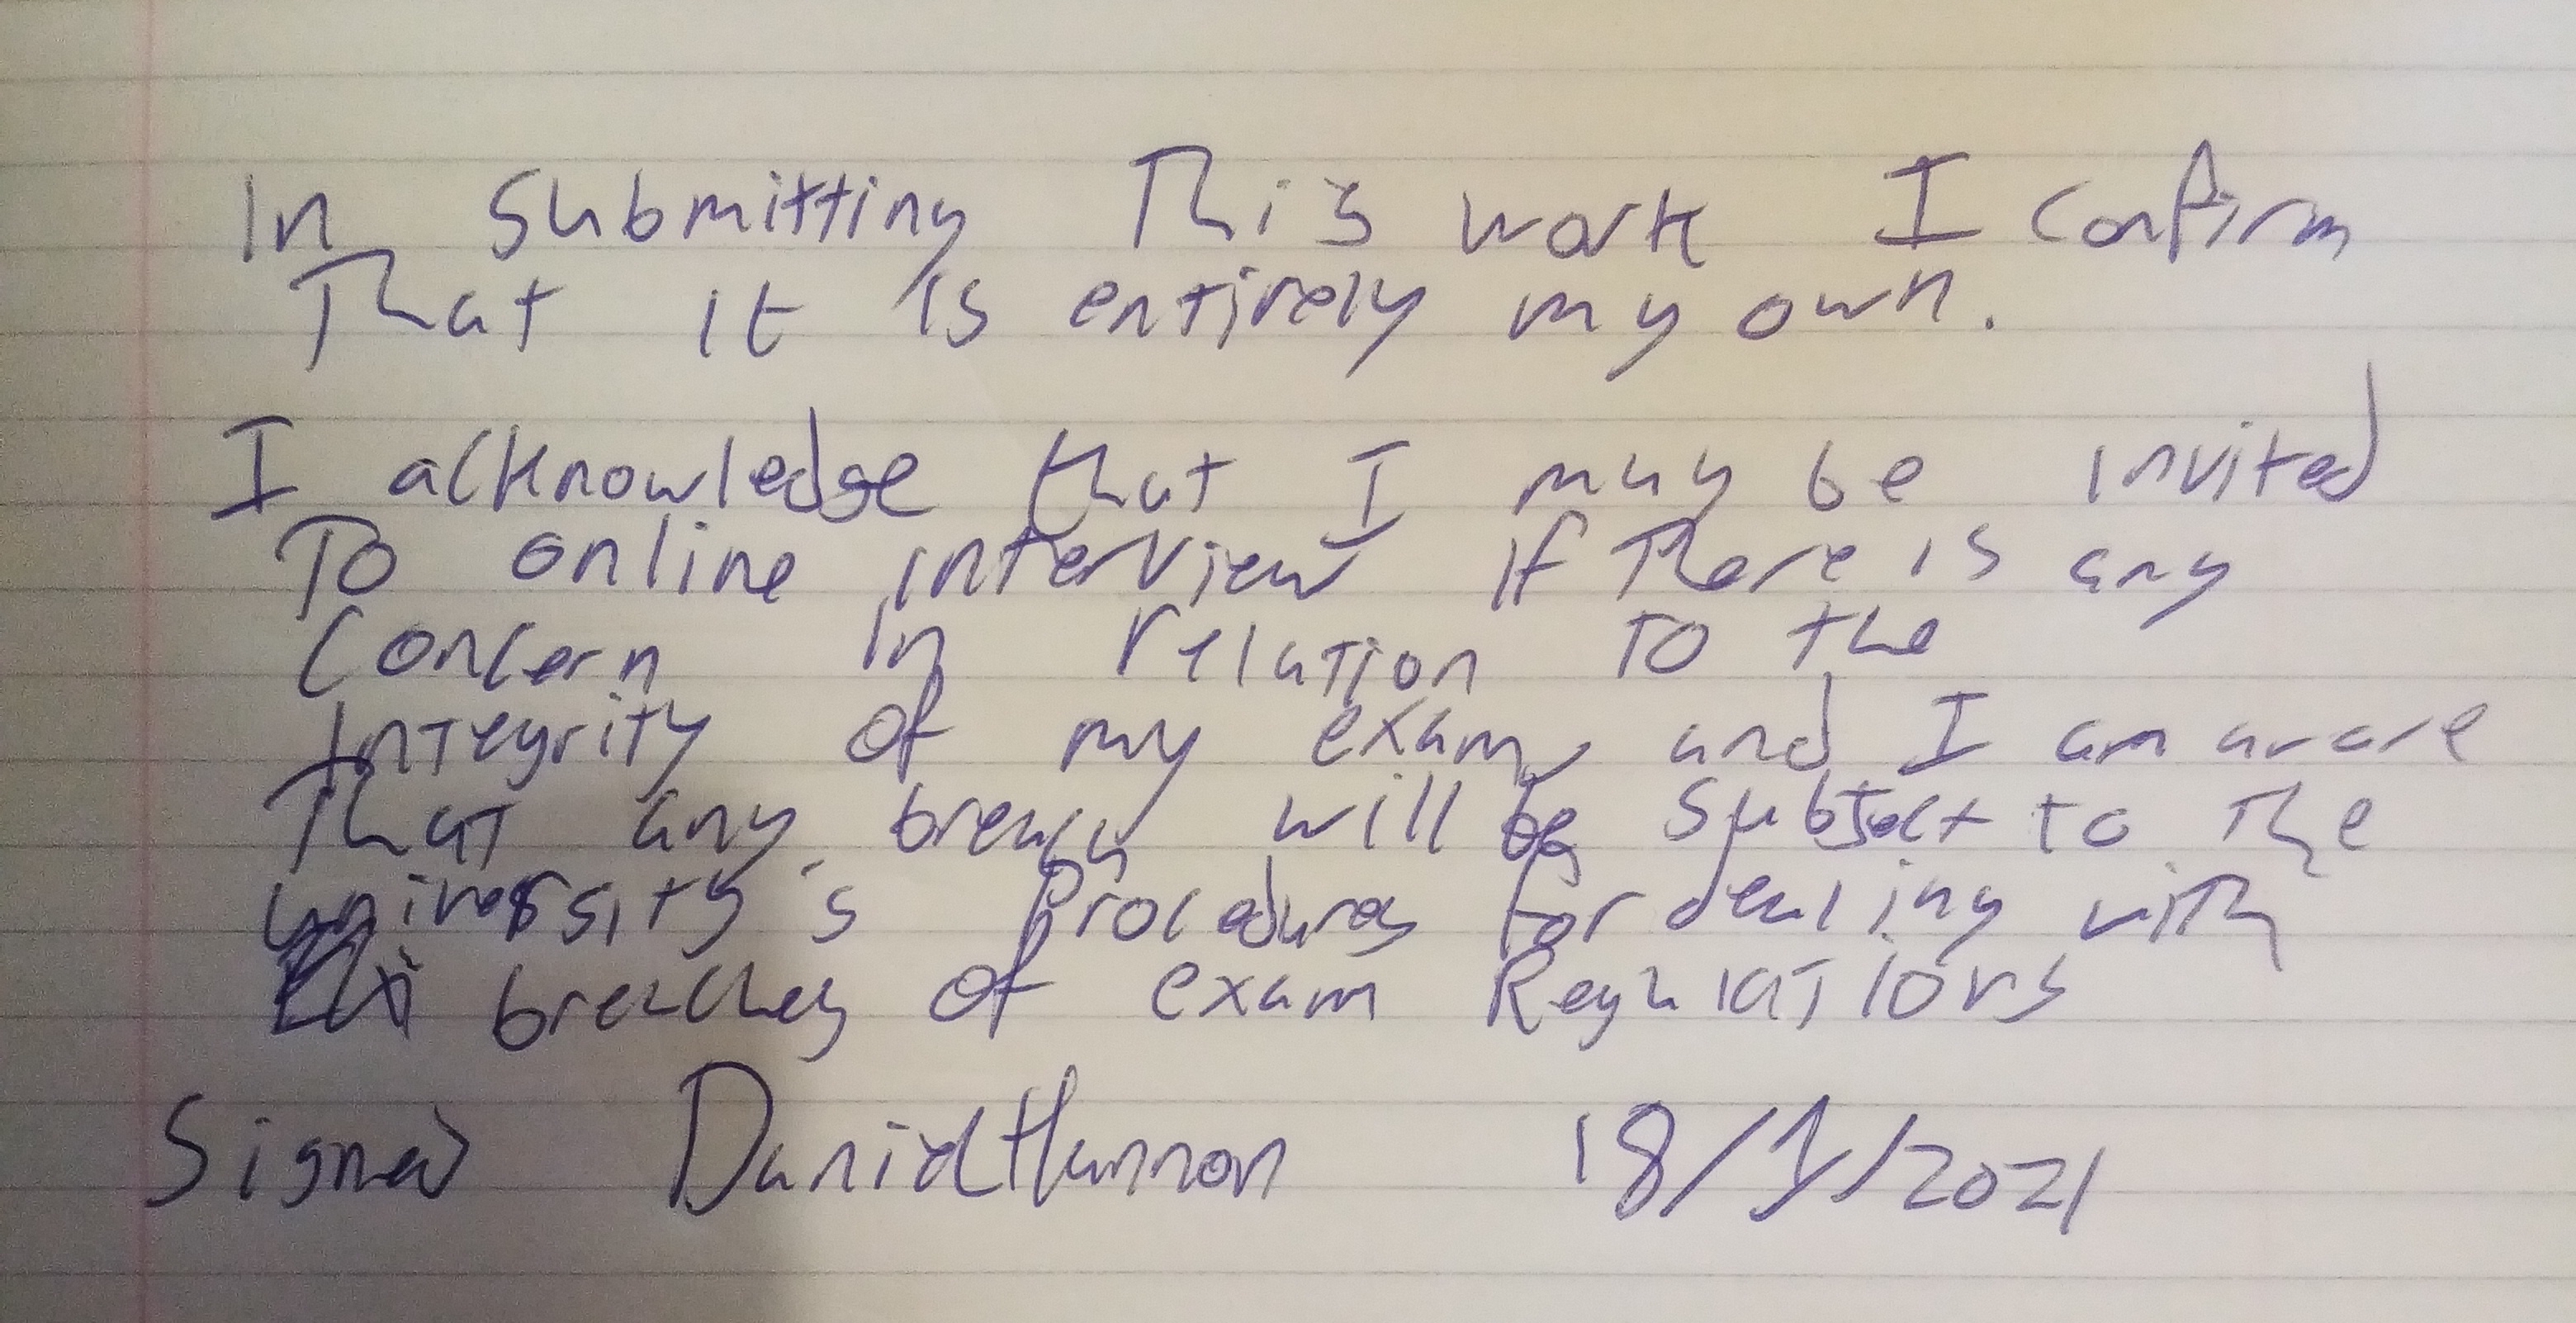 In submitting This work I confirm
That it is entirely my own.
I acknowledge that I may be invited
To online interview if There is any
Concern in relation TO the
Integrity of my exam, and I am aware
That any breach will be Subject to The
university's Procedures for dealing with
breaches of exam Regulations
Signed Daniel Hannon 18/1/2021